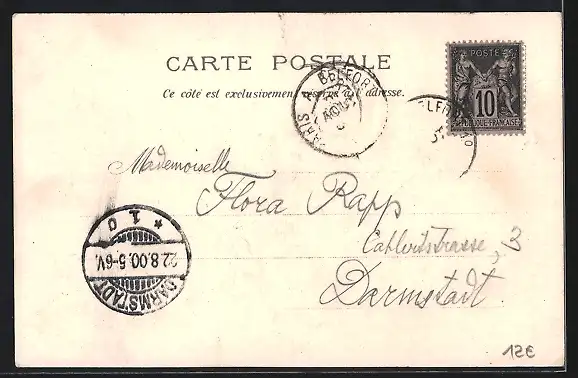 CARTE POSTALE
Ce côté est exclusivement réservé à l'adresse.
POSTES
10
REPUBLIQUE FRANÇAISE
PARIS A BELFORT
AOUT
Mademoiselle
Flora Rapp
Cahlvitstrasse, 3
Darmstadt.
* 1 0
22.8.00.5-6V.
DARMSTADT
12€